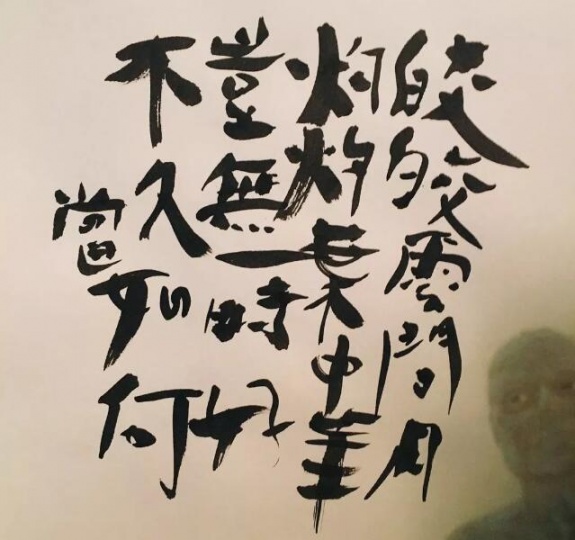 皎皎雲間月
灼灼葉中華
豈無一時好
不久當如何